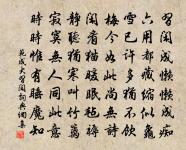 習閑成懶懶成癡
六用都藏縮似龜
雪已許多猶不飲
梅今如此尚無詩
閑看貓暖眠氈褥
靜聽猧寒叫竹籬
寂寞無人同此意
時時惟有睡魔知
范成大習閑